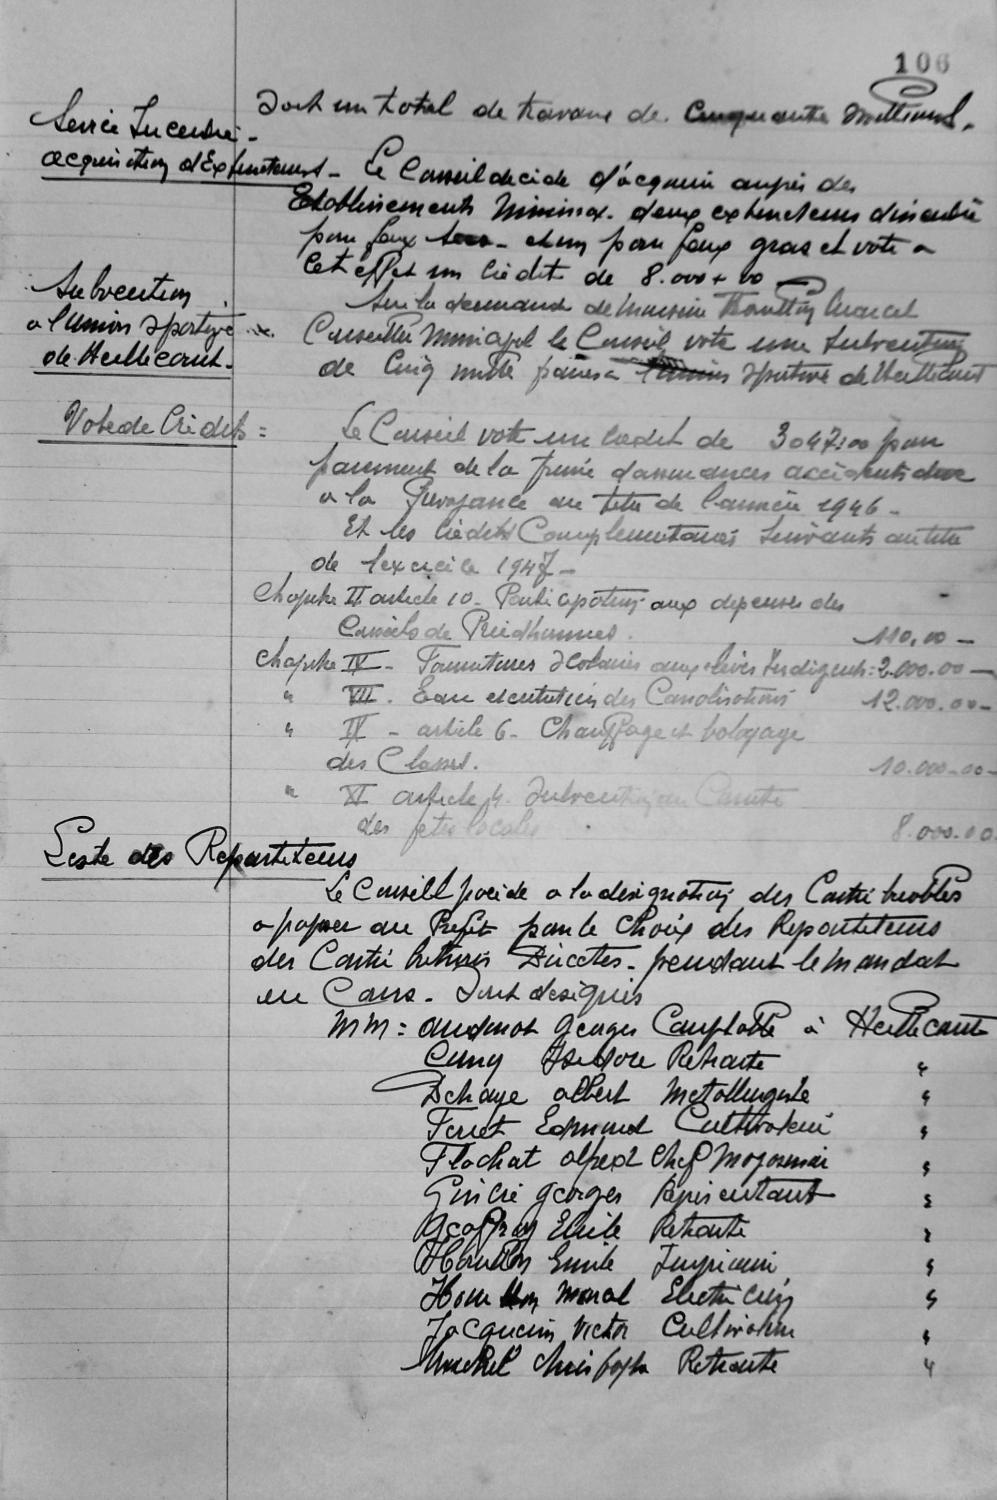 106
Soit un total de travaux de Cinquante Millions.
Service Incendie -
acquisition d'Extincteurs - Le Conseil décide d'acquérir auprès des
Etablissements Minimax. deux extincteurs d'incendie
pour feux secs - et un pour feux gras et vote a
cet effet un Crédit de 8.000+00
Subvention
a l'Union Sportive
de Heillecourt -
Sur la demande de Monsieur Houillon Marcel
Conseiller Municipal le Conseil vote une Subvention
de Cinq mille francs a l'Union Sportive de Heillecourt
Vote de Crédits =
Le Conseil vote un Crédit de 3047:00 pour
paiement de la prime d'assurances accidents due
a la Prevoyance au titre de l'année 1946 -
Et les Crédits Complementaires Suivants au titre
de l'exercice 1947 -
Chapitre II article 10 - Participation aux dépenses des
Conseils de Prudhommes. 110,00 -
Chapitre IV - Fournitures Scolaires aux élèves Indigents: 2.000.00 -
" VII. Eau et entretien des Canalisations 12.000.00 -
" IX - article 6 - Chauffage et balayage
des Classes. 10.000-00-
" XI article 4. Subvention au Comité
des fetes locales 8.000.00
Liste des Repartiteurs
Le Conseil procède a la désignation des Contribuables
a proposer au Préfet pour le Choix des Repartiteurs
des Contributions Directes - pendant le mandat
en Cours - Sont designés
MM = Audinot Georges Comptable à Heillecourt
Cuny Isidore Retraité "
Dehaye Albert Metallurgiste "
Ferret Edmond Cultivateur "
Flachat Alfred Chef Magasinier "
Georges Représentant "
Geoffroy Emile Retraité "
Houillon Emile Ingénieur "
Houillon Marcel Electricien "
Jacquemin Victor Cultivateur "
Michel Christophe Retraité "